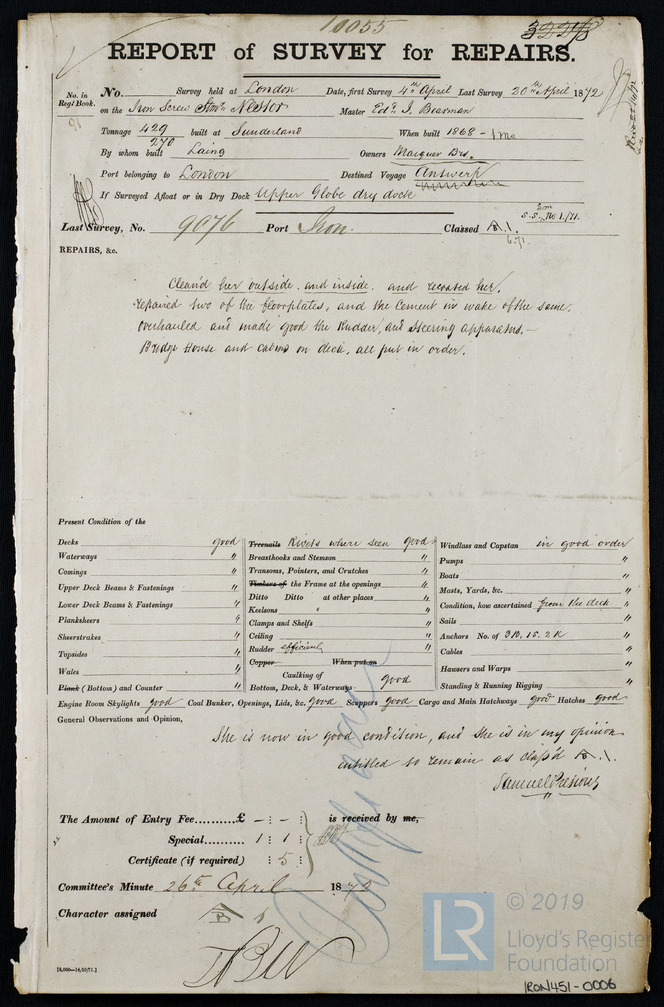 10055
REPORT of SURVEY for REPAIRS.
No. in Regt. Book.
No. Survey held at London Date, first Survey 4th April Last Survey 20th April 1872
on the Iron Screw Stmr Nestor Master Edd. I. Bearman
Tonnage 429 built at Sunderland When built 1868 - 1 mo
270
By whom built Laing Owners Marquer Brs.
Port belonging to London Destined Voyage Antwerp
If Surveyed Afloat or in Dry Dock Upper Globe dry dock
S.S. No 1./71.
Last Survey, No. 9076 Port Iron. Classed A.1.
6.71.
REPAIRS, &c.
Clean'd her outside, and inside, and recoated her.
repaired two of the floorplates, and the Cement in wake of the same.
Overhauled and made good the Rudder, and Steering apparatus.—
Bridge House and cabins on deck, all put in order.
Present Condition of the
Decks good
Waterways "
Comings "
Upper Deck Beams & Fastenings "
Lower Deck Beams & Fastenings "
Planksheers "
Sheerstrakes "
Topsides "
Wales "
Plank (Bottom) and Counter "
Treenails Rivets where seen good
Breasthooks and Stemson "
Transoms, Pointers, and Crutches "
Timbers of the Frame at the openings "
Ditto Ditto at other places "
Keelsons "
Clamps and Shelfs "
Ceiling "
Rudder efficient "
Copper When put on
Caulking of
Bottom, Deck, & Waterways good
Windlass and Capstan in good order
Pumps "
Boats "
Masts, Yards, &c. "
Condition, how ascertained from the deck "
Sails "
Anchors No. of 3B. 1S. 2K "
Cables "
Hawsers and Warps "
Standing & Running Rigging "
Engine Room Skylights good Coal Bunker, Openings, Lids, &c. good Scuppers good Cargo and Main Hatchways good Hatches good
General Observations and Opinion,
She is now in good condition, and she is in my opinion
entitled to remain as class'd A.1.
Samuel Presious
The Amount of Entry Fee..........£ - : - : is received by me,
Special.......... 1 : 1 :
Certificate (if required) : 5 :
Committee's Minute 26th April 1872
Character assigned
[8,000—14,10/71.]
LR
© 2019
Lloyd's Register
Foundation
IRON451-0006